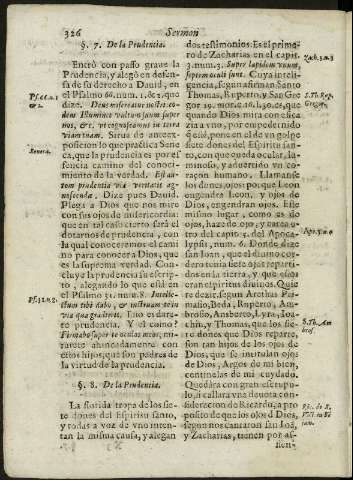 326
Sermon
§. 7. De la Prudencia.
Entrò con passo graue la
Prudencia, y alegò en defen-
sa de su derecho a Dauid, en
el Psalmo 66. num. 1. &c. que
dize. Deus misereatur nostri
Illuminet vultum suum super
nos, &c. vt cognoscamus in terra
viam tuam. Sirua do antece-
posicion lo que practica Sene
ca, que la prudencia es por es
sencia camino del conoci-
miento de la verdad. Est au-
tem prudentia via veritatis ag-
noscendæ. Dize pues Dauid.
Plega a Dios que nos mire
con sus ojos de misericordia:
que en tal caso cierto serà el
dotarnos de prudencia, con
la qual conoceremos el cami
no para conocer a Dios, que
es la suprema verdad. Con-
cluye la prudencia su escrip-
to, alegando lo que està en
el Psalmo 31. num. 8. Intelle-
ctum tibi dabo, & instruam te in
via qua gradieris. Esto es darte
prudencia. Y el como?
Firmabo super te oculos meos, mi-
rarete atentamente con
estos hijos, que son padres de
la virtud de la prudencia.
§. 8. De la Prudencia.
La florida tropa de los sie-
te dones del Espiritu santo,
y todas a voz de vno inten-
tan la misma causa, y alegan
dos testimonios. Es el prime-
ro de Zacharias en el capit.
3. num. 3. Super lapidem vnum,
septem oculi sunt. Cuya inteli-
gencia, segun afirman Santo
Thomas, Ruperto, y San Gre
gor 19. mor. c. 16. l. 30. es, que
quando Dios mira con efica
zia a vno, por empedernido
què este, pone en el de vn golpe
siete dones del Espiritu san-
to, con que queda ocular, lu-
minoso, y aduertido vn co-
raçon humano. Llamanse
los dones ojos: por que Leon
engendra Leon, y ojos de
Dios, engendran ojos. Este
mismo lugar, como es de
ojos, haze de ojo, y carea a
otro del capit. 5. del Apoca-
lypsi, num. 6. Donde dize
san Ioan, que el dichoso cor-
dero tiene siete ojos repar-
tidos en la tierra, y que estos
eran espiritus diuinos. Quie
re dezir, segun Arethas Pan-
nonio, Beda, Ruperto, Am-
brosio, Ansberto, Lyra, Ioa-
chin, y Thomas, que los sie-
te dones que Dios reparte,
son tan hijos de los ojos de
Dios, que se intitulan ojos
de Dios, Argos de mi bien,
centinelas de mi cuydado.
Quedàra con gran escrupu-
lo, si callàra vna deuota con-
sideracion de Ricardo, a pro
posito de que los ojos de Dios,
segun nos cantaron san Ioã,
y Zacharias, tienen por as-
sien-
Seneca.
Ps. 31. n. 2.
Zach. 3. n. 3
S. Th. Rup.
Gregor.